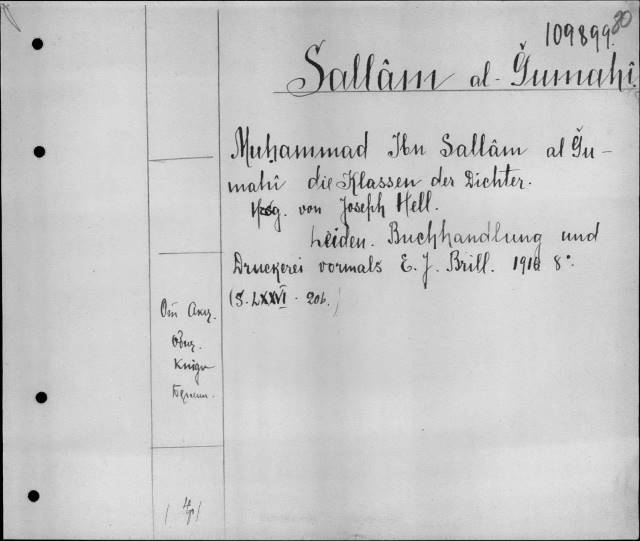 109899.
30
Sallâm al-Ǧumahî
Muḥammad Ibn Sallâm al Ǧu-
mahî die Klassen der Dichter.
Hsg. von Joseph Hell.
Leiden. Buchhandlung und
Druckerei vormals E. J. Brill. 1916 8°.
(S. LXXVI. 206.)
От Акц.
Общ.
Книги